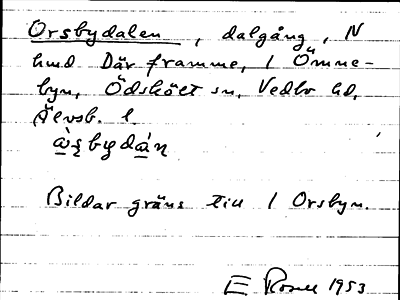 Orsbydalen, dalgång, N
hmd Där framme, 1 Ömme-
byn, Ödskölt sn, Vedbo hd,
Älvsb. l.
Bildar gräns till 1 Orsbyn.
E 1953